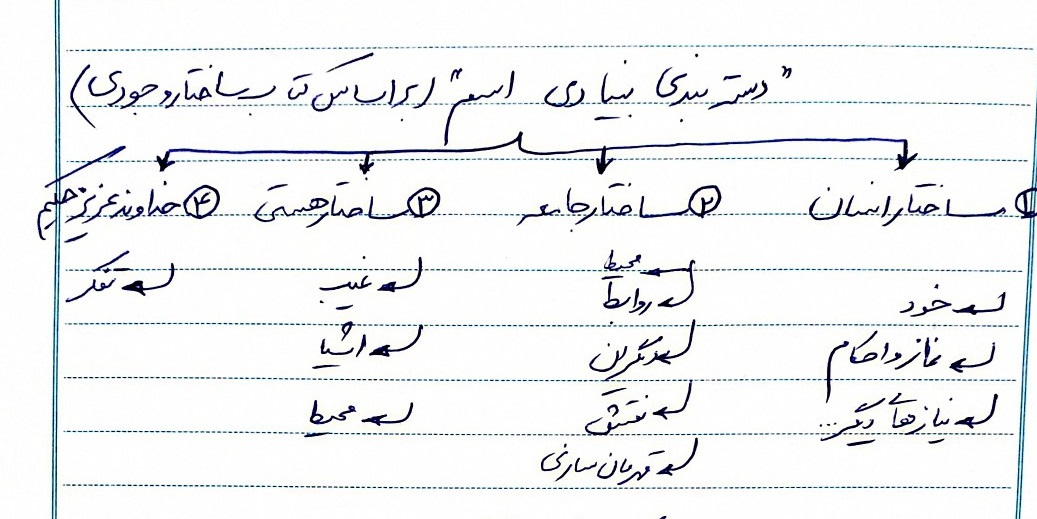 "دسته بندی بنیادی اسم" (براساس کتاب ساختار وجودی)
① ساختار انسان ② ساختار جامعه ③ ساختار هستی ④ خداوند عزیز حکیم
محیط
خود روابط غیب تفکر
نماز و احکام دیگران اشیا
نیازهای دیگر... نقش محیط
قهرمان سازی